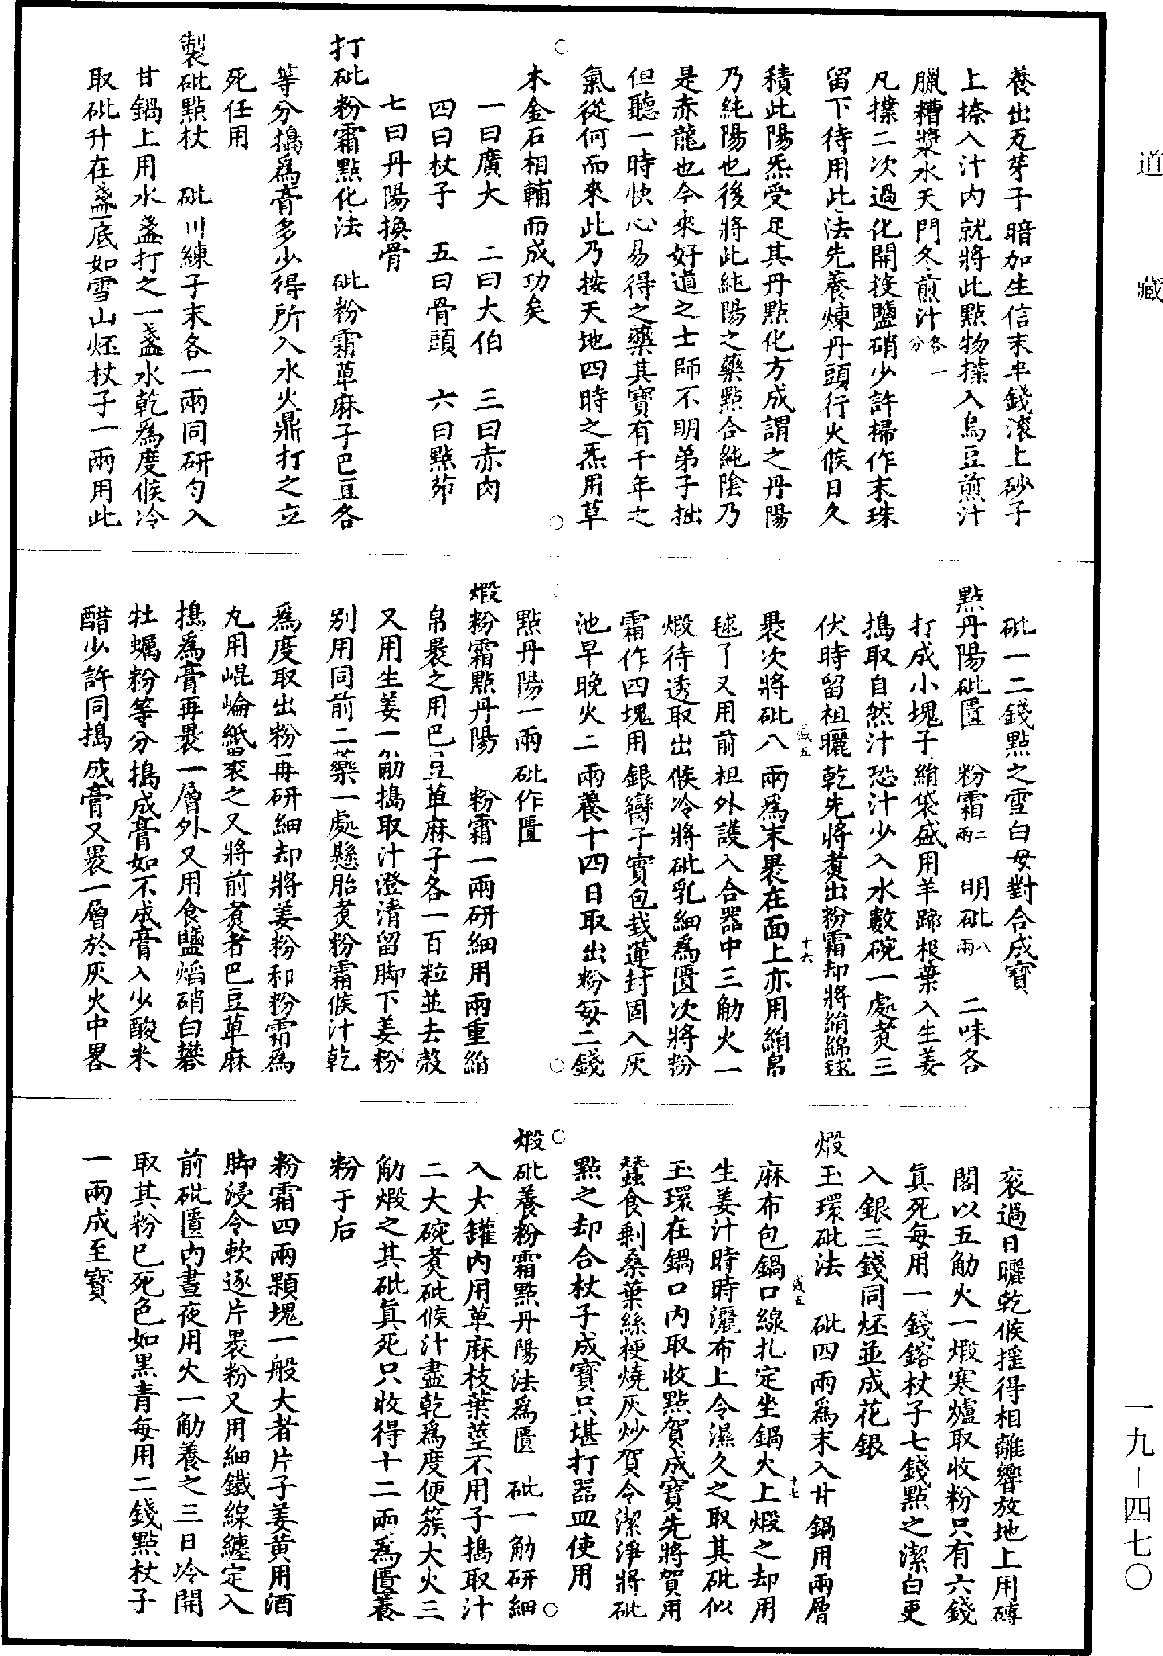 道藏
養出瓦芽子暗加生信末半錢滚上砂子
上捺入汁内就將此點物搽入烏豆煎汁
臘糟漿水天門冬煎汁各一分
凡搽二次過化開投鹽硝少許掃作末珠
留下待用此法先養煉丹頭行火候日久
積此陽炁受足其丹點化方成謂之丹陽
乃純陽也後將此純陽之藥點合純陰乃
是赤龍也今來好道之士師不明弟子拙
但聽一時快心易得之藥其寶有千年之
氣從何而來此乃按天地四時之炁用草
木金石相輔而成功矣
一曰廣大 二曰大伯 三曰赤肉
四曰杖子 五曰骨頭 六曰點茆
七曰丹陽換骨
打砒粉霜點化法 砒粉霜草麻子巴豆各
等分搗爲膏多少得所入水火鼎打之立
死任用
製砒點杖 砒川練子末各一兩同研勻入
甘鍋上用水盞打之一盞水乾爲度候冷
取砒升在盞底如雪山烴杖子一兩用此
砒一二錢點之雪白母對合成寶
點丹陽砒匱 粉霜二兩 明砒八兩 二味各
打成小塊子絹袋盛用羊蹄根葉入生姜
搗取自然汁恐汁少入水數碗一處煑三
伏時留柤曬乾先將煑出粉霜却將絹綿毬
褁次將砒八兩爲末褁在面上亦用絹帛
毬了又用前柤外護入合器中三觔火一
煅待透取出候冷將砒乳細爲匱次將粉
霜作四塊用銀臠子實包栽蓮封固入灰
池早晚火二兩養十四日取出粉每二錢
點丹陽一兩砒作匱
煅粉霜點丹陽 粉霜一兩研細用兩重絹
帛褁之用巴豆草麻子各一百粒並去殻
又用生姜一觔搗取汁澄清留脚下姜粉
别用同前二藥一處懸胎煑粉霜候汁乾
爲度取出粉再研細却將姜粉和粉霜爲
丸用崐崘帋裹之又將前煑者巴豆草麻
搗爲膏再褁一層外又用食鹽熖硝白礬
牡蠣粉等分搗成膏如不成膏入少酸米
醋少許同搗成膏又褁一層於灰火中畧
衮過日曬乾候揺得相離響放地上用磚
閣以五觔火一煅寒爐取收粉只有六錢
真死每用一錢鎔杖子七錢點之潔白更
入銀三錢同烴並成花銀
煅玉環砒法 砒四兩爲末入甘鍋用兩層
麻布包鍋口線扎定坐鍋火上煅之却用
生姜汁時時灑布上令濕久之取其砒似
玉環在鍋口内取收點賀成寶先將賀用
蠶食剩桑葉絲梗燒灰炒賀令潔淨將砒
點之却合杖子成寶只堪打器皿使用
煅砒養粉霜點丹陽法爲匱 砒一觔研細
入大罐内用草麻枝葉莖不用子搗取汁
二大碗煑砒候汁盡乾爲度便簇大火三
觔煅之其砒真死只收得十二兩爲匱養
粉于后
粉霜四兩顆塊一般大者片子姜黄用酒
脚浸令軟逐片褁粉又用細鐵線纏定入
前砒匱内晝夜用火一觔養之三日冷開
取其粉已死色如黑青每用二錢點杖子
一兩成至寶
一九—四七〇